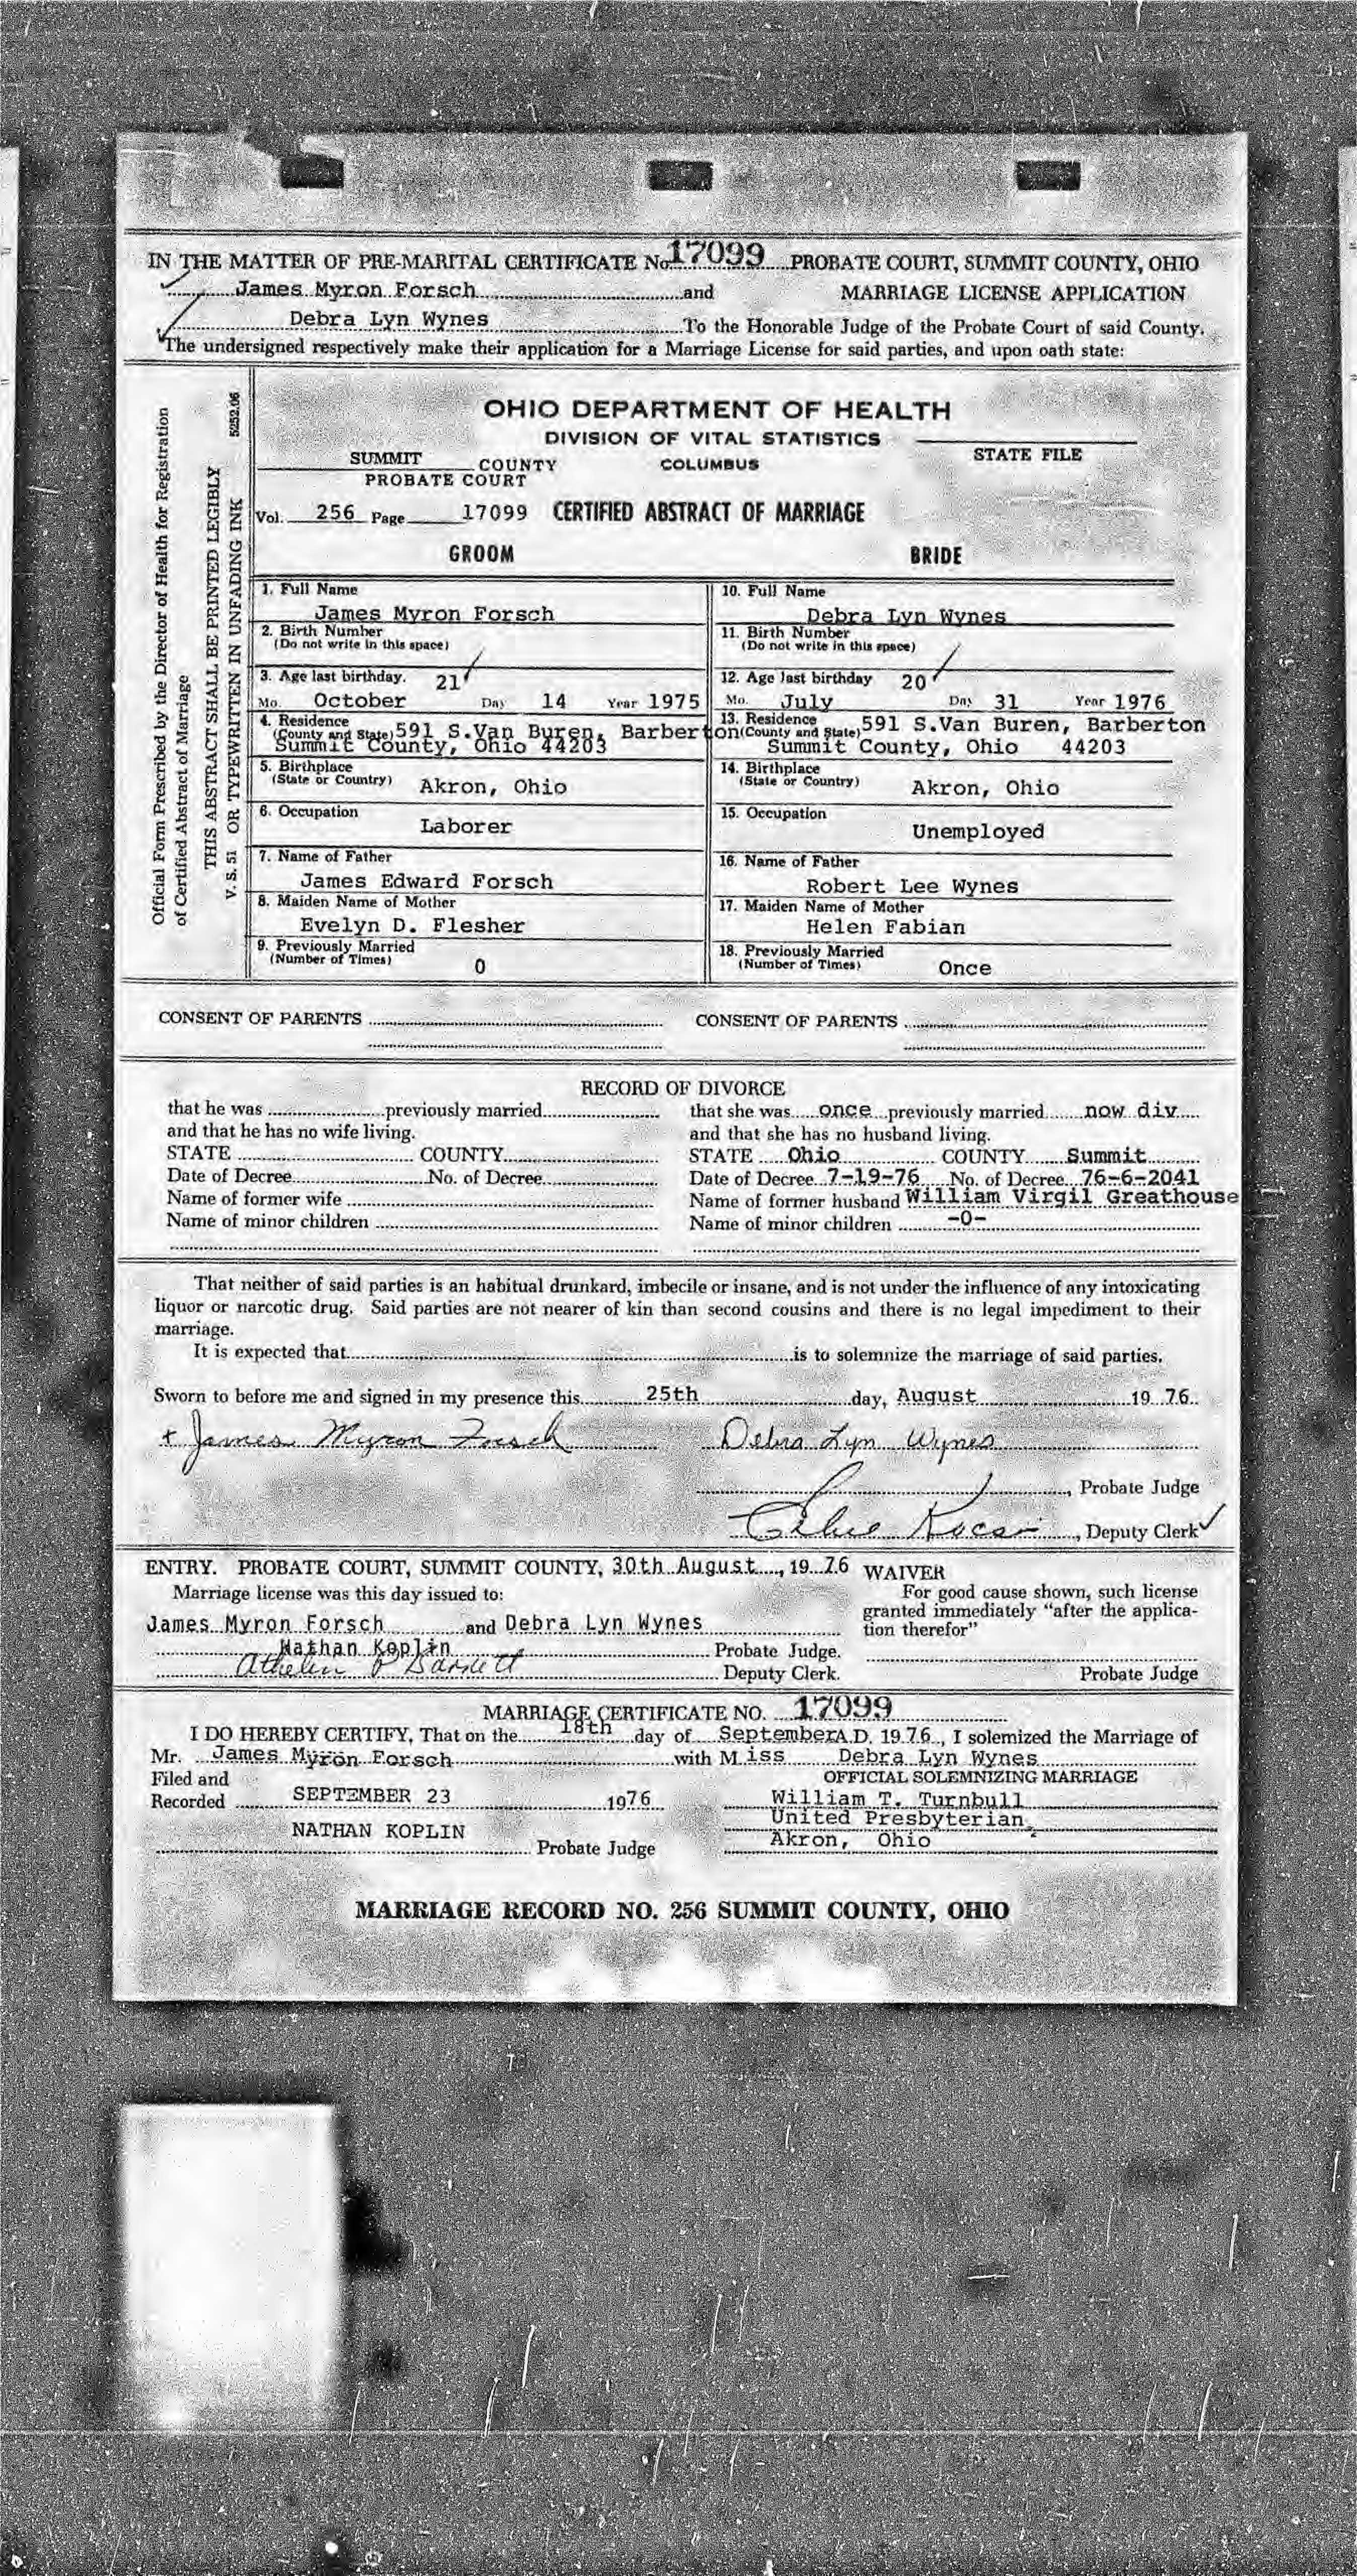 IN THE MATTER OF PRE-MARITAL CERTIFICATE No. 17099 PROBATE COURT, SUMMIT COUNTY, OHIO
James Myron Forsch and MARRIAGE LICENSE APPLICATION
Debra Lyn Wynes To the Honorable Judge of the Probate Court of said County.
The undersigned respectively make their application for a Marriage License for said parties, and upon oath state:
Official Form Prescribed by the Director of Health for Registration
of Certified Abstract of Marriage
THIS ABSTRACT SHALL BE PRINTED LEGIBLY
V. S. 51 OR TYPEWRITTEN IN UNFADING INK 5252.06
OHIO DEPARTMENT OF HEALTH
DIVISION OF VITAL STATISTICS
SUMMIT COUNTY COLUMBUS STATE FILE
PROBATE COURT
Vol. 256 Page 17099 CERTIFIED ABSTRACT OF MARRIAGE
GROOM BRIDE
1. Full Name 10. Full Name
James Myron Forsch Debra Lyn Wynes
2. Birth Number 11. Birth Number
(Do not write in this space) (Do not write in this space)
3. Age last birthday. 21 12. Age last birthday 20
Mo. October Day 14 Year 1975 Mo. July Day 31 Year 1976
4. Residence 13. Residence
(County and State) 591 S.Van Buren, Barberton (County and State) 591 S.Van Buren, Barberton
Summit County, Ohio 44203 Summit County, Ohio 44203
5. Birthplace 14. Birthplace
(State or Country) Akron, Ohio (State or Country) Akron, Ohio
6. Occupation 15. Occupation
Laborer Unemployed
7. Name of Father 16. Name of Father
James Edward Forsch Robert Lee Wynes
8. Maiden Name of Mother 17. Maiden Name of Mother
Evelyn D. Flesher Helen Fabian
9. Previously Married 18. Previously Married
(Number of Times) 0 (Number of Times) Once
CONSENT OF PARENTS CONSENT OF PARENTS
RECORD OF DIVORCE
that he was previously married that she was once previously married now div
and that he has no wife living. and that she has no husband living.
STATE COUNTY STATE Ohio COUNTY Summit
Date of Decree No. of Decree Date of Decree 7-19-76 No. of Decree 76-6-2041
Name of former wife Name of former husband William Virgil Greathouse
Name of minor children Name of minor children -0-
That neither of said parties is an habitual drunkard, imbecile or insane, and is not under the influence of any intoxicating
liquor or narcotic drug. Said parties are not nearer of kin than second cousins and there is no legal impediment to their
marriage.
It is expected that is to solemnize the marriage of said parties.
Sworn to before me and signed in my presence this 25th day, August 19 76
+ James Myron Forsch Debra Lyn Wynes
, Probate Judge
, Deputy Clerk
ENTRY. PROBATE COURT, SUMMIT COUNTY, 30th August, 19 76 WAIVER
Marriage license was this day issued to: For good cause shown, such license
James Myron Forsch and Debra Lyn Wynes granted immediately "after the applica-
tion therefor"
Nathan Koplin Probate Judge.
Deputy Clerk. Probate Judge
MARRIAGE CERTIFICATE NO. 17099
I DO HEREBY CERTIFY, That on the 18th day of September A.D. 19 76, I solemized the Marriage of
Mr. James Myron Forsch with Miss Debra Lyn Wynes
Filed and OFFICIAL SOLEMNIZING MARRIAGE
Recorded SEPTEMBER 23 1976 William T. Turnbull
United Presbyterian
NATHAN KOPLIN Probate Judge Akron, Ohio
MARRIAGE RECORD NO. 256 SUMMIT COUNTY, OHIO